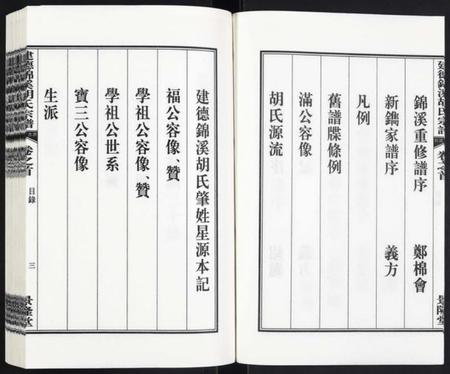 建德錦溪胡氏宗譜 卷之首 景隆堂
錦溪重修譜序 鄭棉會
新鐫家譜序 義方
凡例
舊譜牒條例
滿公容像
胡氏源流
建德錦溪胡氏肇姓星源本記
福公容像、贊
學祖公容像、贊
學祖公世系
寶三公容像
生派
建德錦溪胡氏宗譜 卷之首 目錄 三 景隆堂